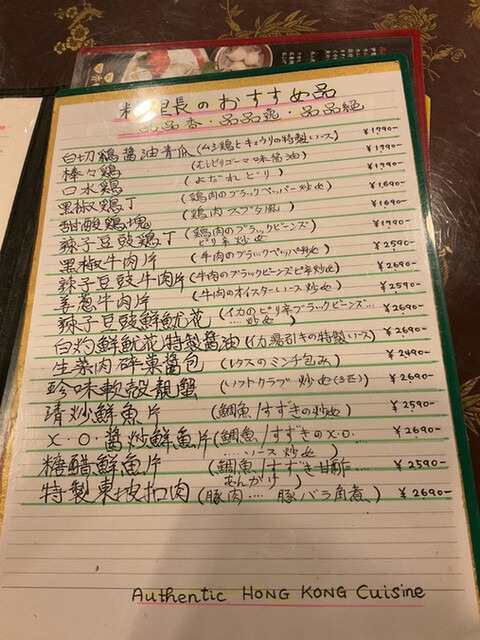 料理長のおすすめ品
品品香・品品競・品品絕
白切鶏醤油青瓜(ムシ鶏とキュウリの特製ソース) ¥1,990-
棒々鶏 (むしどりゴーマ味醤油) ¥1,990-
口水鶏 (よだれどり) ¥1,990-
黒椒鶏丁 (鶏肉のブラックペッパー炒め) ¥1,690-
甜酸鶏塊 (鶏肉スブタ風) ¥1,690-
辣子豆豉鶏丁 (鶏肉のブラックビーンズピリ辛炒め) ¥1,990-
黒椒牛肉片 (牛肉のブラックペッパー炒め) ¥2590-
辣子豆豉牛肉片 (牛肉のブラックビーンズピ辛炒め) ¥2690-
姜葱牛肉片 (牛肉のオイスターソース炒め) ¥2590-
辣子豆豉鮮魷花 (イカのピリ辛ブラックビーンズ…炒め) ¥2690-
白灼鮮魷花特製醤油(イカ湯引きの特製ソース) ¥2690-
生菜肉碎菜醤包 (レタスのミンチ包み) ¥2,490-
珍味軟殻靚蟹 (ソフトクラブ炒め(3匹)) ¥2690-
清炒鮮魚片 (鯛魚/すずきの炒め) ¥2590-
X・O・醤炒鮮魚片(鯛魚/すずきのX.O.…ソース炒め) ¥2690-
糖醋鮮魚片 (鯛魚/すずき甘酢…あんがけ) ¥2590-
特製東坡扣肉 (豚肉…豚バラ角煮) ¥2690-
Authentic HONG KONG Cuisine